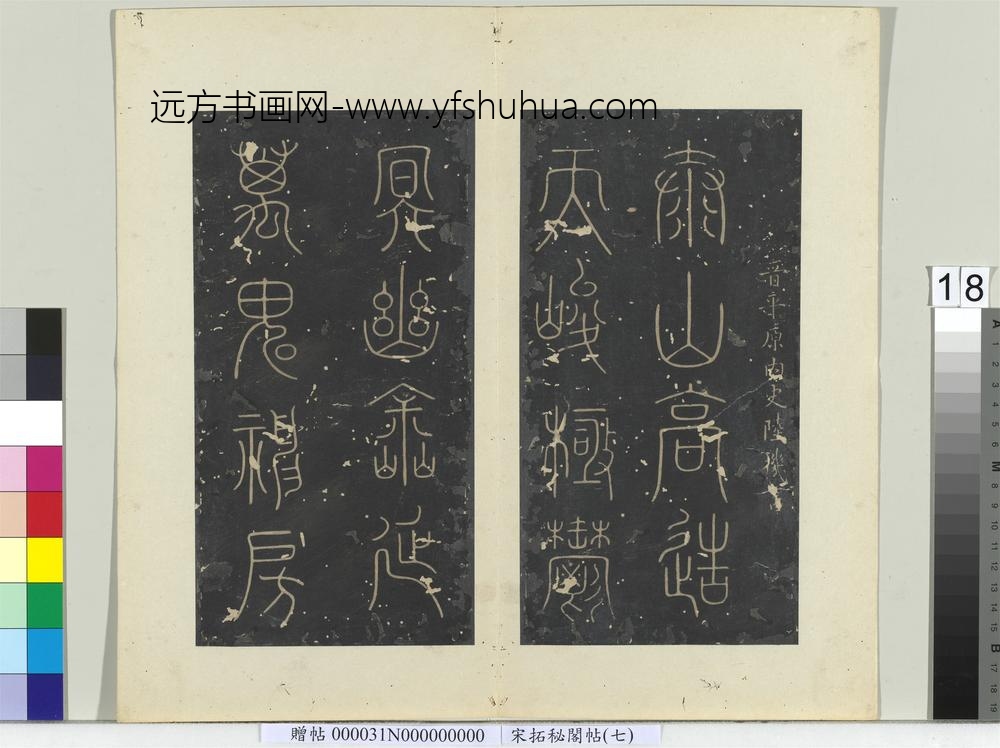 远方书画网-www.yfshuhua.com
晉平原内史陸機
泰山高造
天峻極鬱
冥幽嵞延
萬鬼神房
18
A 1 2 3 4 5 6 M 8 9 10 11 12 13 14 15 B 17 18 19
贈帖 000031N000000000 宋拓秘閣帖(七)